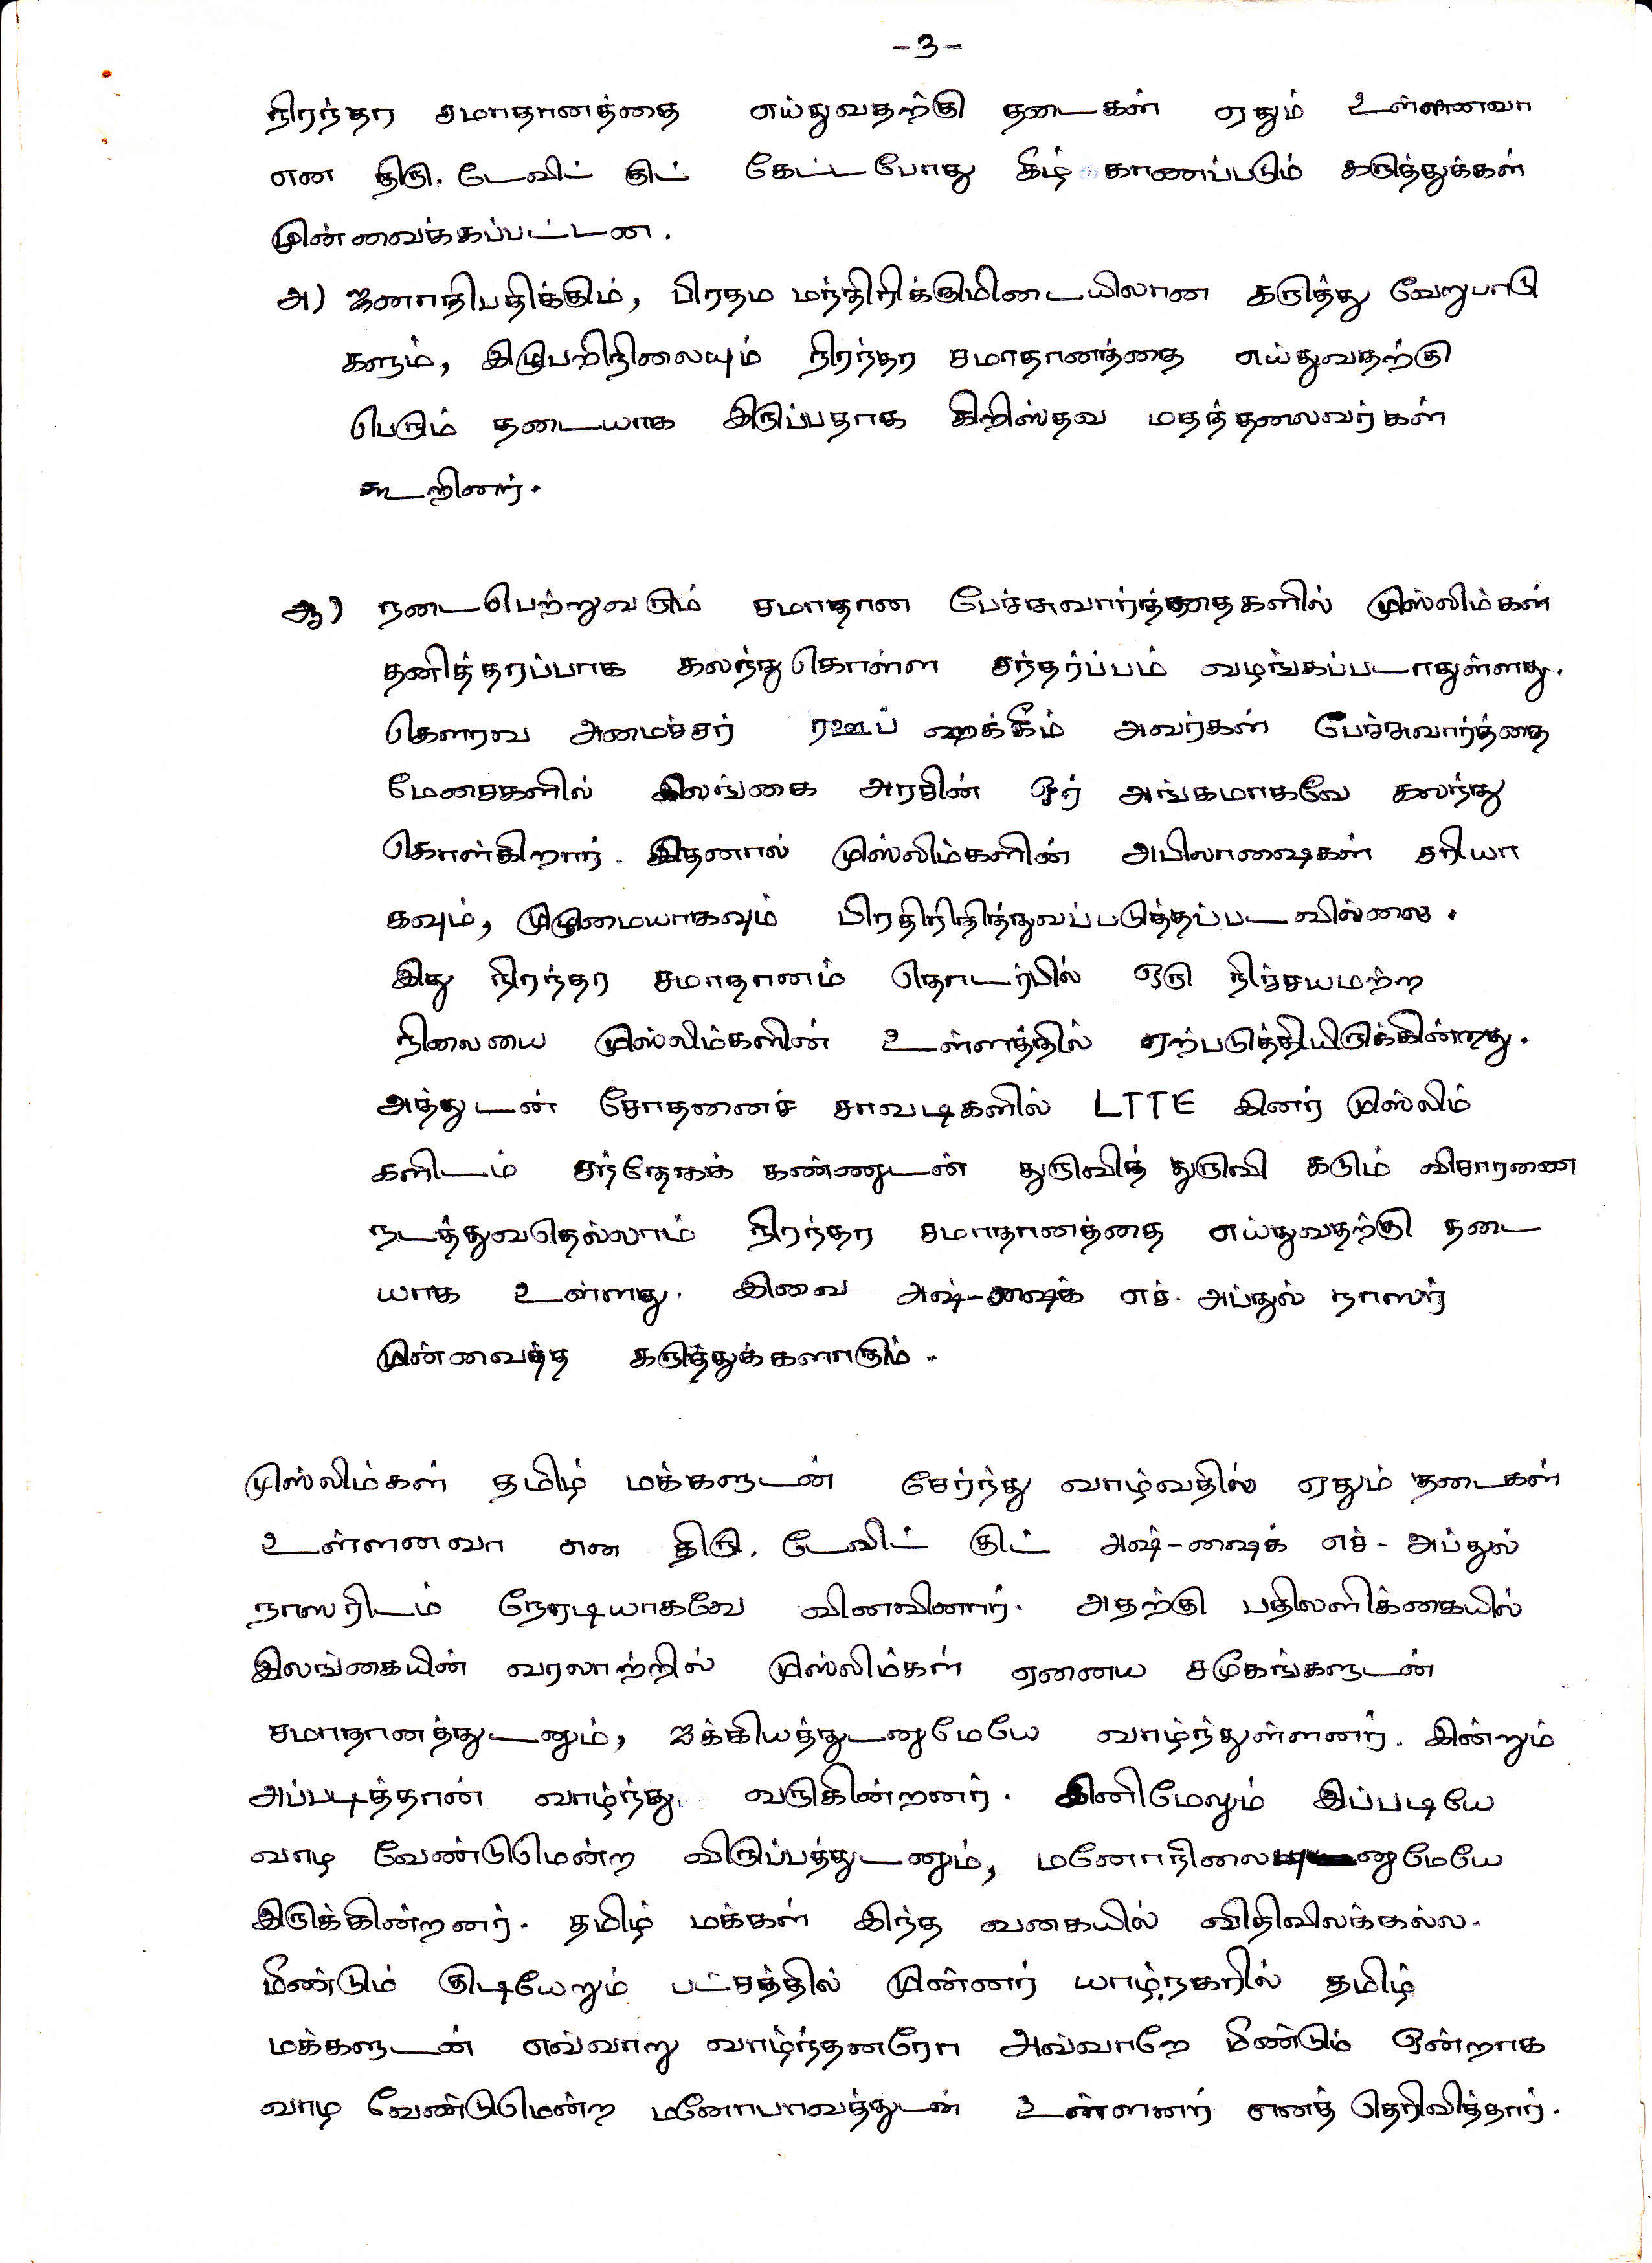 -3-
நிரந்தர சமாதானத்தை எய்துவதற்கு தடைகள் ஏதும் உள்ளனவா
என திரு. டேவிட் குட் கேட்டபோது கீழ் காணப்படும் கருத்துக்கள்
முன்வைக்கப்பட்டன.
அ) ஜனாதிபதிக்கும், பிரதம மந்திரிக்குமிடையிலான கருத்து வேறுபாடு
களும், இழுபறிநிலையும் நிரந்தர சமாதானத்தை எய்துவதற்கு
பெரும் தடையாக இருப்பதாக கிறிஸ்தவ மதத்தலைவர்கள்
கூறினர்.
ஆ) நடைபெற்றுவரும் சமாதான பேச்சுவார்த்தைகளில் முஸ்லிம்கள்
தனித்தரப்பாக கலந்துகொள்ள சந்தர்ப்பம் வழங்கப்படாதுள்ளது.
கௌரவ அமைச்சர் ரஊப் ஹக்கீம் அவர்கள் பேச்சுவார்த்தை
மேசைகளில் இலங்கை அரசின் ஓர் அங்கமாகவே கலந்து
கொள்கிறார். இதனால் முஸ்லிம்களின் அபிலாஷைகள் சரியா
கவும், முழுமையாகவும் பிரதிநிதித்துவப்படுத்தப்படவில்லை.
இது நிரந்தர சமாதானம் தொடர்பில் ஒரு நிச்சயமற்ற
நிலையை முஸ்லிம்களின் உள்ளத்தில் ஏற்படுத்தியிருக்கின்றது.
அத்துடன் சோதனைச் சாவடிகளில் LTTE இனர் முஸ்லிம்
களிடம் சந்தேகக் கண்ணுடன் துருவித் துருவி கடும் விசாரணை
நடத்துவதெல்லாம் நிரந்தர சமாதானத்தை எய்துவதற்கு தடை
யாக உள்ளது. இவை அஷ்-ஷைக் எச். அப்துல் நாஸர்
முன்வைத்த கருத்துக்களாகும்.
முஸ்லிம்கள் தமிழ் மக்களுடன் சேர்ந்து வாழ்வதில் ஏதும் தடைகள்
உள்ளனவா என திரு. டேவிட் குட் அஷ்-ஷைக் எச். அப்துல்
நாஸரிடம் நேரடியாகவே வினவினார். அதற்கு பதிலளிக்கையில்
இலங்கையின் வரலாற்றில் முஸ்லிம்கள் ஏனைய சமூகங்களுடன்
சமாதானத்துடனும், ஐக்கியத்துடனுமேயே வாழ்ந்துள்ளனர். இன்றும்
அப்படித்தான் வாழ்ந்து வருகின்றனர். இனிமேலும் இப்படியே
வாழ வேண்டுமென்ற விருப்பத்துடனும், மனோநிலையுடனுமேயே
இருக்கின்றனர். தமிழ் மக்கள் இந்த வகையில் விதிவிலக்கல்ல.
மீண்டும் குடியேறும் பட்சத்தில் முன்னர் யாழ்நகரில் தமிழ்
மக்களுடன் எவ்வாறு வாழ்ந்தனரோ அவ்வாறே மீண்டும் ஒன்றாக
வாழ வேண்டுமென்ற மனோபாவத்துடன் உள்ளனர் எனத் தெரிவித்தார்.